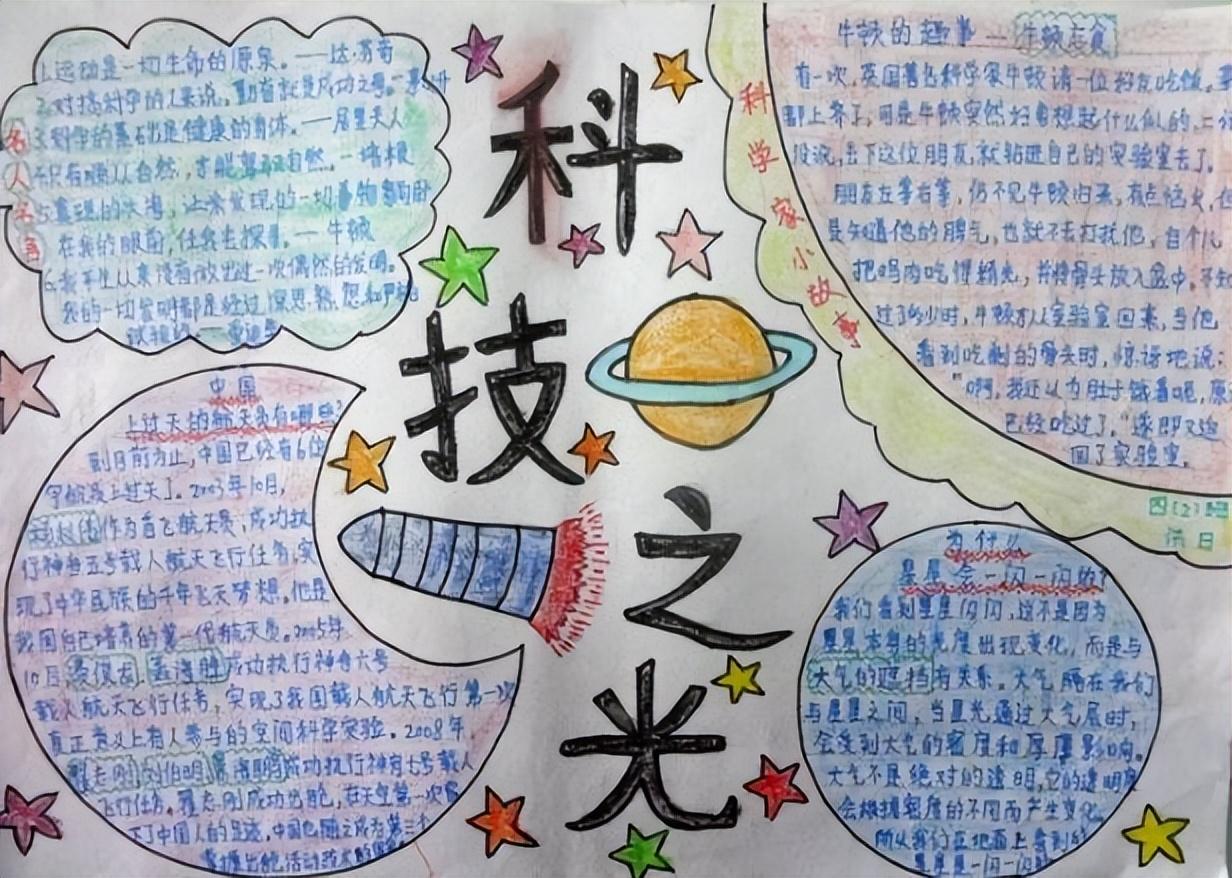 科技之光
名人名言
1.运动是一切生命的原泉。——达·芬奇
2.对搞科学的人来说，勤奋就是成功之母。
3.科学的基础是健康的身体。——居里夫人
只有顺从自然，才能驾驭自然。——培根
在我的眼前，任我去探寻。——牛顿
6.我平生从来没有做出过一次偶然的发明。
我的一切发明都是经过深思熟
科学家小故事
牛顿的趣事——牛顿忘食
有一次，英国著名科学家牛顿请一位好友吃饭。
都上齐了，可是牛顿突然好象想起什么似的，
没说，丢下这位朋友，就钻进自己的实验室去了。
朋友左等右等，仍不见牛顿归来，有点恼火，
是知道他的脾气，也就不去打扰他，自个儿
把鸡肉吃得精光，并将骨头放入盒中，
过了多小时，牛顿才从实验室回来，当他
看到吃剩的骨头时，惊讶地说：
“啊，我还以为肚子饿着呢，原
已经吃过了。”遂即又迈
回了实验室。
中国
上过天的航天员有哪些？
到目前为止，中国已经有6位
宇航员上过天了。2003年10月，
杨利伟作为首飞航天员，成功执
行神舟五号载人航天飞行任务，实
现了中华民族的千年飞天梦想。他是
我国自己培养的第一代航天员。2005年
10月费俊龙、聂海胜成功执行神舟六号
载人航天飞行任务，实现了我国载人航天飞行第一次
真正意义上有人参与的空间科学实验。2008年，
翟志刚，刘伯明，景海鹏成功执行神舟七号载人
飞行任务。翟志刚成功出舱，在太空第一次留
下了中国人的足迹，中国也随之成为第三个
掌握出舱活动技术的国家
为什么
星星会一闪一闪的？
我们看到星星闪闪，这不是因为
星星本身的光度出现变化，而是与
大气的遮挡有关系。大气隔在我们
与星星之间，当星光通过大气层时，
会受到大气的密度和厚薄影响。
大气不是绝对的透明，它的透明度
会根据密度的不同而产生变化。
所以我们在地面上看到的
星星是一闪一闪